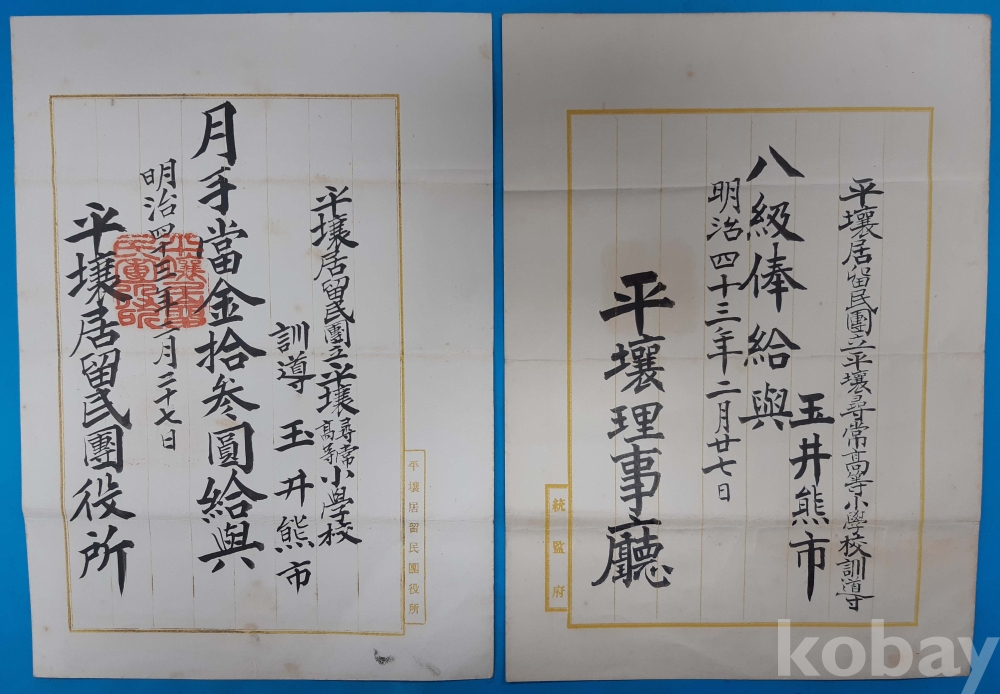 平壤居留民團立平壤尋常高等小學校
訓導 玉井熊市
月手當金拾參圓給與
明治四十三年二月二十七日
平壤居留民團役所
平壤居留民團役所
平壤居留民團立平壤尋常高等小學校訓導
玉井熊市
八級俸給與
明治四十三年二月廿七日
平壤理事廳
統監府
kobay